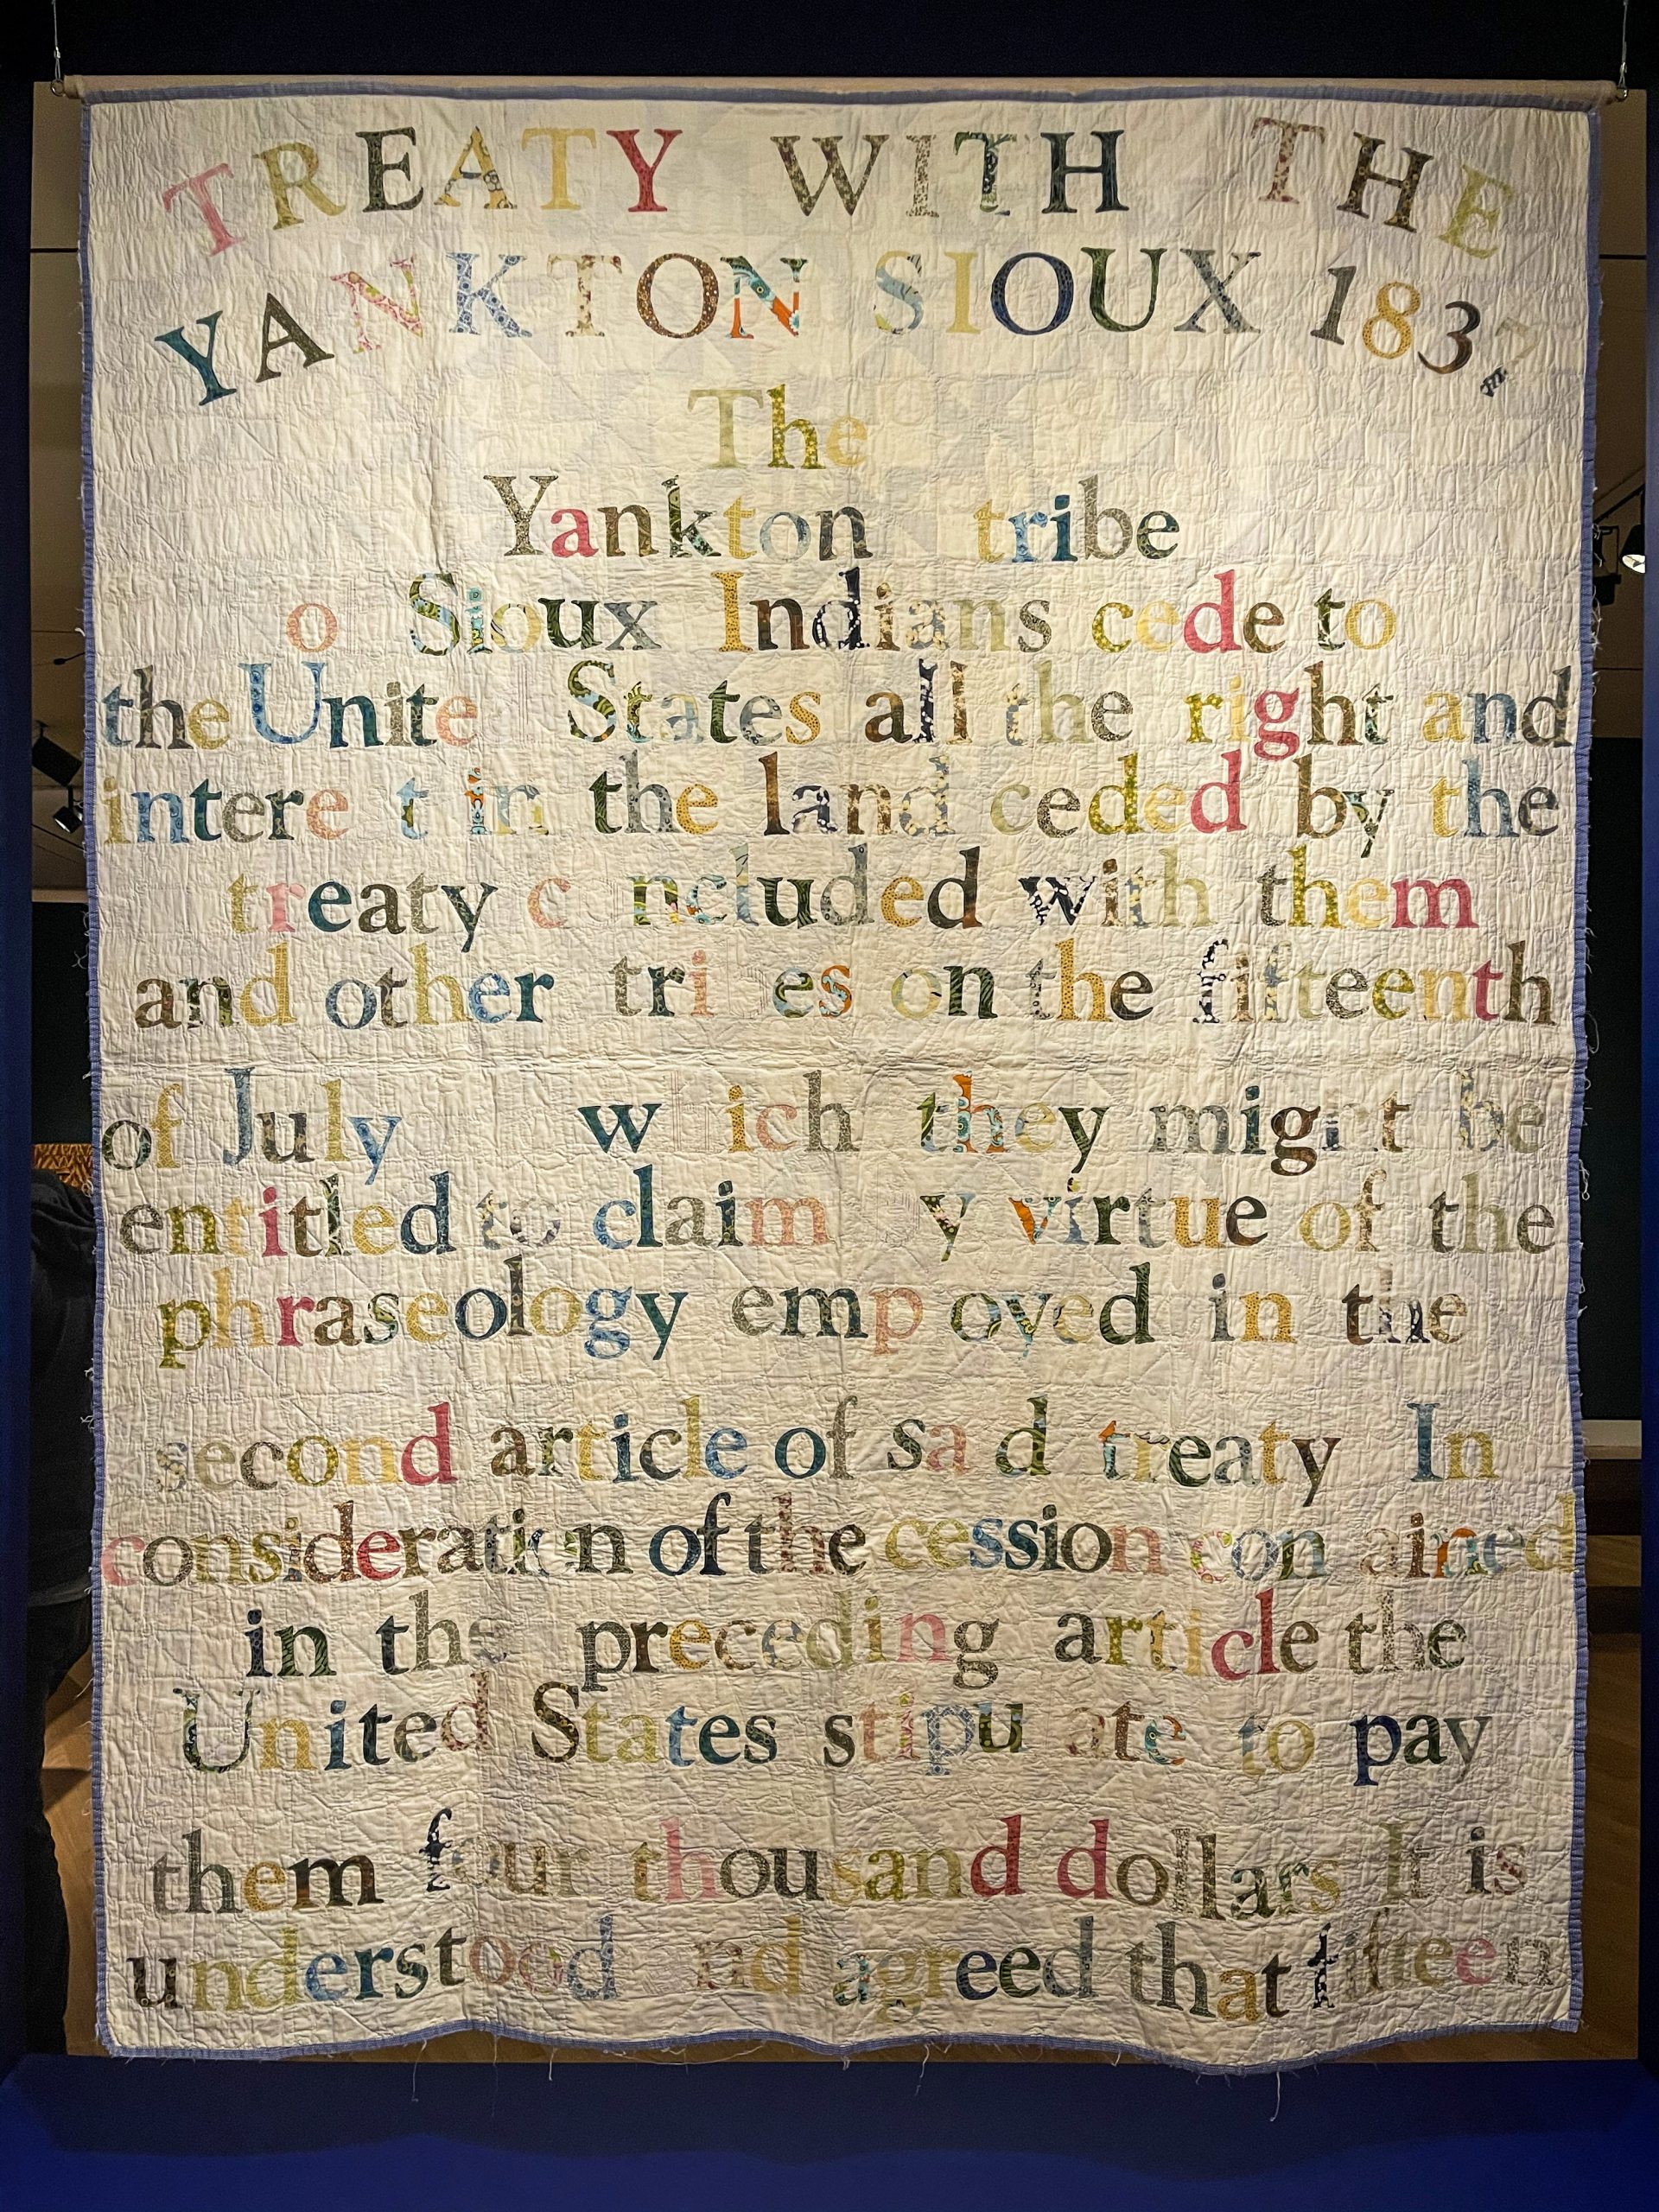 TREATY WITH THE
YANKTON SIOUX 1837
The
Yankton tribe
o Sioux Indians cede to
the Unite States all the right and
intere t in the land ceded by the
treaty c ncluded with them
and other tri es on the fifteenth
of July w ich they might be
entitled to claim y virtue of the
phraseology emp oyed in the
second article of sa d treaty In
consideration of the cession con ained
in the preceding article the
United States stipu ate to pay
them four thousand dollars It is
understood nd agreed that fifteen